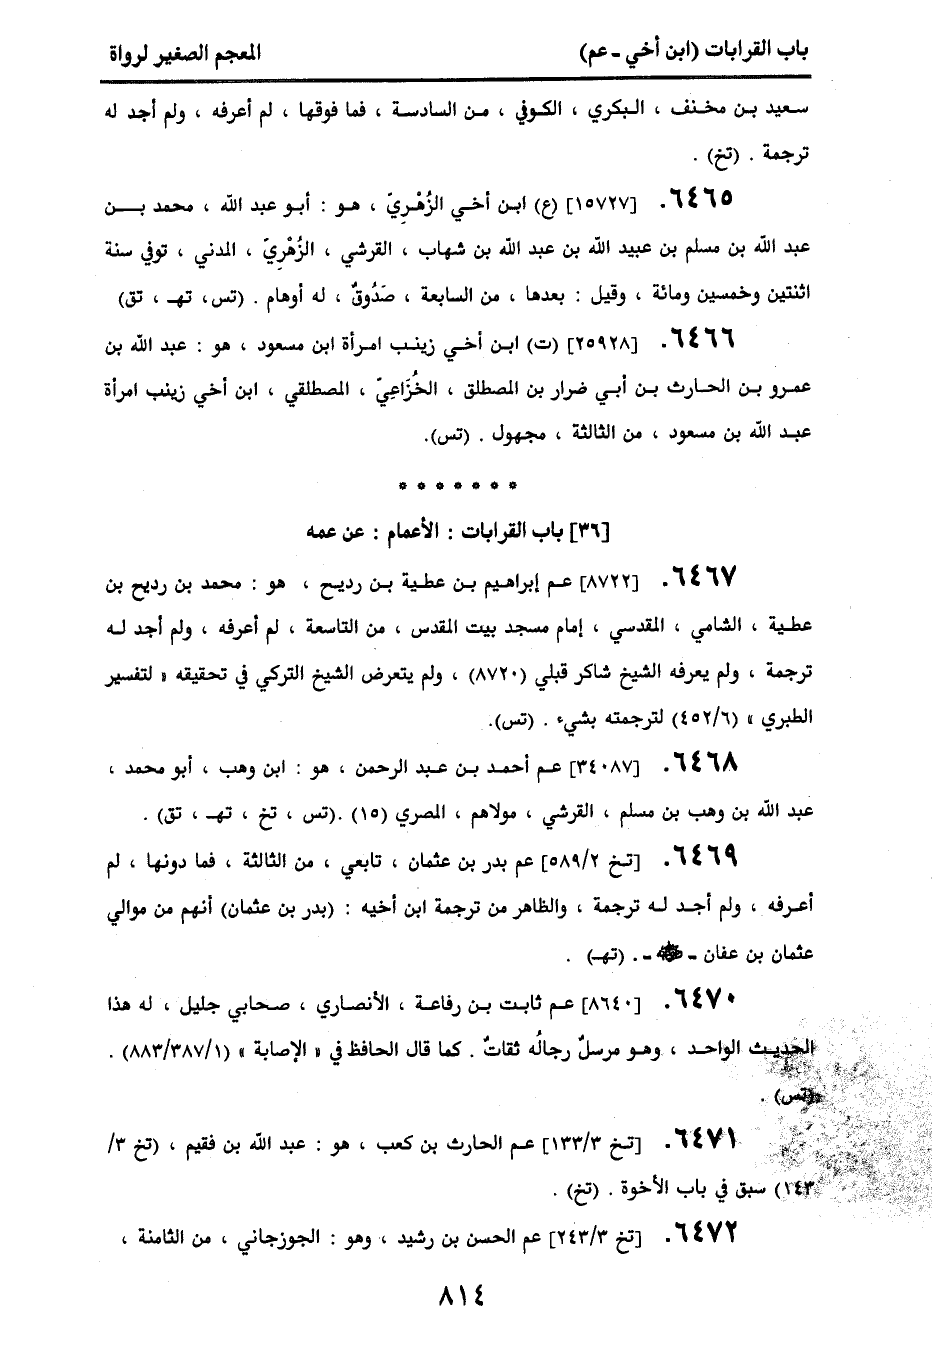 باب القرابات (ابن أخي ـ عم) المعجم الصغير لرواة
سعيد بن مخنف ، البكري ، الكوفي ، من السادسة ، فما فوقها ، لم أعرفه ، ولم أجد له
ترجمة . (تخ) .
٦٤٦٥. [١٥٧٢٧] (ع) ابن أخي الزُهْرِيّ ، هو : أبو عبد الله ، محمد بن
عبد الله بن مسلم بن عبيد الله بن عبد الله بن شهاب ، القرشي ، الزُهْرِيّ ، المدني ، توفي سنة
اثنتين وخمسين ومائة ، وقيل : بعدها ، من السابعة ، صَدُوقٌ ، له أوهام . (تس، تهـ ، تق)
٦٤٦٦. [٢٥٩٢٨] (ت) ابن أخي زينب امرأة ابن مسعود ، هو : عبد الله بن
عمرو بن الحارث بن أبي ضرار بن المصطلق ، الخُزَاعِيّ ، المصطلقي ، ابن أخي زينب امرأة
عبد الله بن مسعود ، من الثالثة ، مجهول . (تس).
* * * * * * *
[٣٦] باب القرابات : الأعمام : عن عمه
٦٤٦٧. [٨٧٢٢] عم إبراهيم بن عطية بن رديح ، هو : محمد بن رديح بن
عطية ، الشامي ، المقدسي ، إمام مسجد بيت المقدس ، من التاسعة ، لم أعرفه ، ولم أجد له
ترجمة ، ولم يعرفه الشيخ شاكر قبلي (٨٧٢٠) ، ولم يتعرض الشيخ التركي في تحقيقه « لتفسير
الطبري » (٤٥٢/٦) لترجمته بشيء . (تس).
٦٤٦٨. [٣٤٠٨٧] عم أحمد بن عبد الرحمن ، هو : ابن وهب ، أبو محمد ،
عبد الله بن وهب بن مسلم ، القرشي ، مولاهم ، المصري (١٥) .(تس ، تخ ، تهـ ، تق) .
٦٤٦٩. [تخ ٥٨٩/٢] عم بدر بن عثمان ، تابعي ، من الثالثة ، فما دونها ، لم
أعرفه ، ولم أجد له ترجمة ، والظاهر من ترجمة ابن أخيه : (بدر بن عثمان) أنهم من موالي
عثمان بن عفان ـ ﷺ ـ . (تهـ) .
٦٤٧٠. [٨٦٤٠] عم ثابت بن رفاعة ، الأنصاري ، صحابي جليل ، له هذا
الحديث الواحد ، وهو مرسلٌ رجالُه ثقاتٌ . كما قال الحافظ في « الإصابة » (٨٨٣/٣٨٧/١) .
(تس) .
٦٤٧١. [تخ ١٣٣/٣] عم الحارث بن كعب ، هو : عبد الله بن فقيم ، (تخ ٣/
١٤٣) سبق في باب الأخوة . (تخ) .
٦٤٧٢. [تخ ٢٤٣/٣] عم الحسن بن رشيد ، وهو : الجوزجاني ، من الثامنة ،
٨١٤